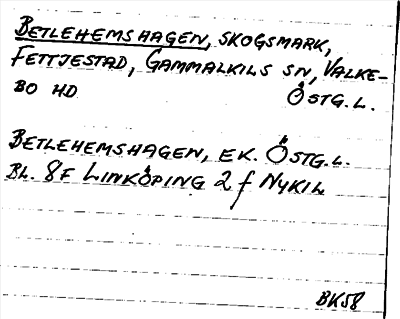 BETLEHEMSHAGEN, SKOGSMARK,
FETTJESTAD, GAMMALKILS SN, VALKE-
BO HD ÖSTG. L.
BETLEHEMSHAGEN, EK. ÖSTG. L.
BL. 8F LINKÖPING 2 f NYKIL
BK58